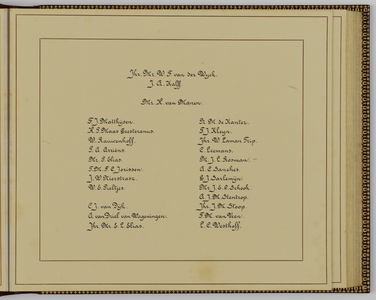 Jhr. Mr. W. F. van der Wyck.
J. A. Kalff.
Mr. H. van Manen.
F. J. Matthijsen.
H. F. Maas Geesteranus.
W. Rauwenhoff.
F. A. Arriëns.
Mr. P. Elias.
J. W. Nierstrasz.
W. E. Pieltjes.
C. J. van Dijk.
A. van Driel van Wageningen.
Jhr. Mr. E. E. Elias.
D. M. de Kanter.
F. J. Kleyn.
Jhr. W. Laman Trip.
C. Leemans.
Mr. J. L. Rosman.
A. E. Sanches.
E. J. Sarlemijn.
Mr. J. E. O. Schoch.
A. J. M. Stentrop.
Jhr. J. M. Stoop.
F. M. van Veen.
E. C. Westhoff.